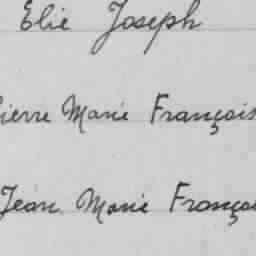 Elie Joseph
Pierre Marie François
Jean Marie François